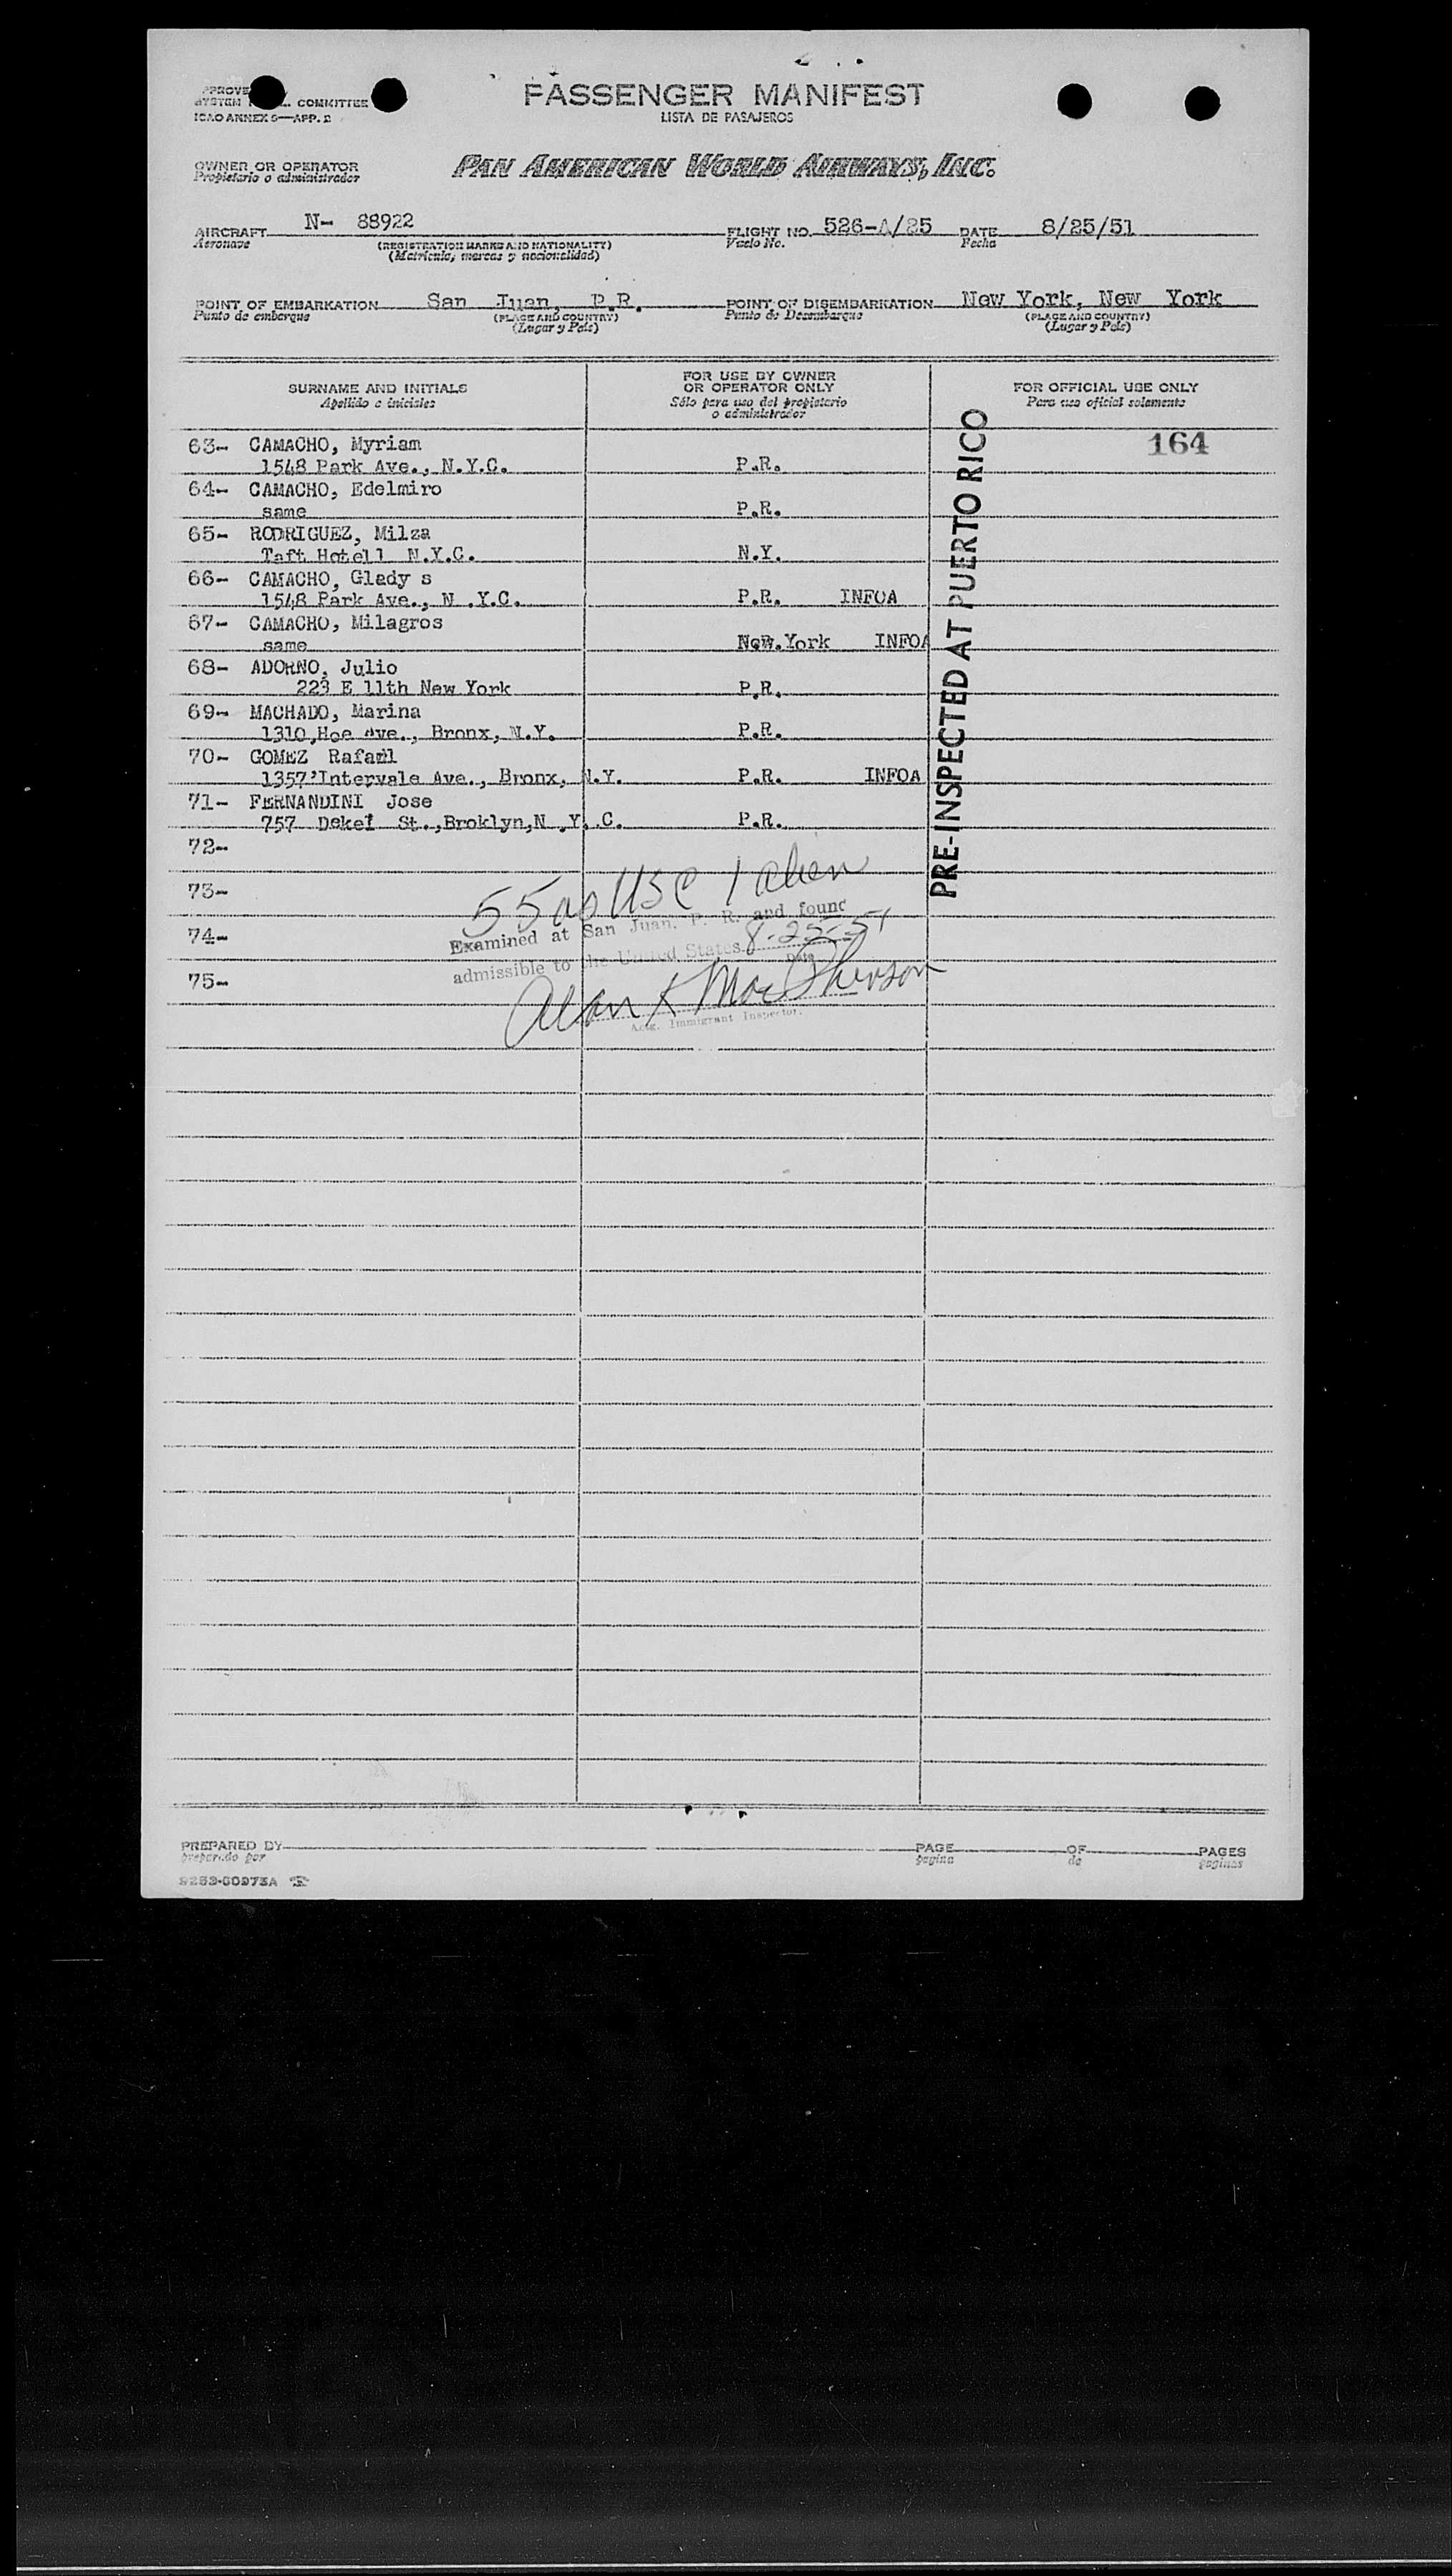 PASSENGER MANIFEST
LISTA DE PASAJEROS
COMMITTEE
ICAO ANNEX 9—APP. 2
OWNER OR OPERATOR
Propietario o administrador
PAN AMERICAN WORLD AIRWAYS, INC.
AIRCRAFT N- 88922 FLIGHT NO. 526-A/25 DATE 8/25/51
Aeronave (REGISTRATION MARKS AND NATIONALITY) Vuelo No. Fecha
(Matricula, marcas y nacionalidad)
POINT OF EMBARKATION San Juan, P.R. POINT OF DISEMBARKATION New York, New York
Punto de embarque (PLACE AND COUNTRY) Punto de Desembarque (PLACE AND COUNTRY)
(Lugar y País) (Lugar y País)
SURNAME AND INITIALS FOR USE BY OWNER OR OPERATOR ONLY FOR OFFICIAL USE ONLY
Apellido e iniciales Sólo para uso del propietario o administrador Para uso oficial solamente
164
PRE-INSPECTED AT PUERTO RICO
63- CAMACHO, Myriam
1548 Park Ave., N.Y.C. P.R.
64- CAMACHO, Edelmiro
same P.R.
65- RODRIGUEZ, Milza
Taft Hotell N.Y.C. N.Y.
66- CAMACHO, Glady s
1548 Park Ave., N .Y.C. P.R. INFOA
67- CAMACHO, Milagros
same New.York INFOA
68- ADORNO, Julio
223 E 11th New York P.R.
69- MACHADO, Marina
1310,Hoe Ave., Bronx, N.Y. P.R.
70- GOMEZ Rafael
1357'Intervale Ave., Bronx, N.Y. P.R. INFOA
71- FERNANDINI Jose
757 Dekef St.,Broklyn,N .Y. C. P.R.
72-
73-
74-
75-
55 as USC 1 alien
Examined at San Juan, P. R. and found
admissible to the United States 8-25-51
Date
Alan K MacPherson
Actg. Immigrant Inspector.
PREPARED BY PAGE OF PAGES
preparado por pagina de paginas
9253-00973A